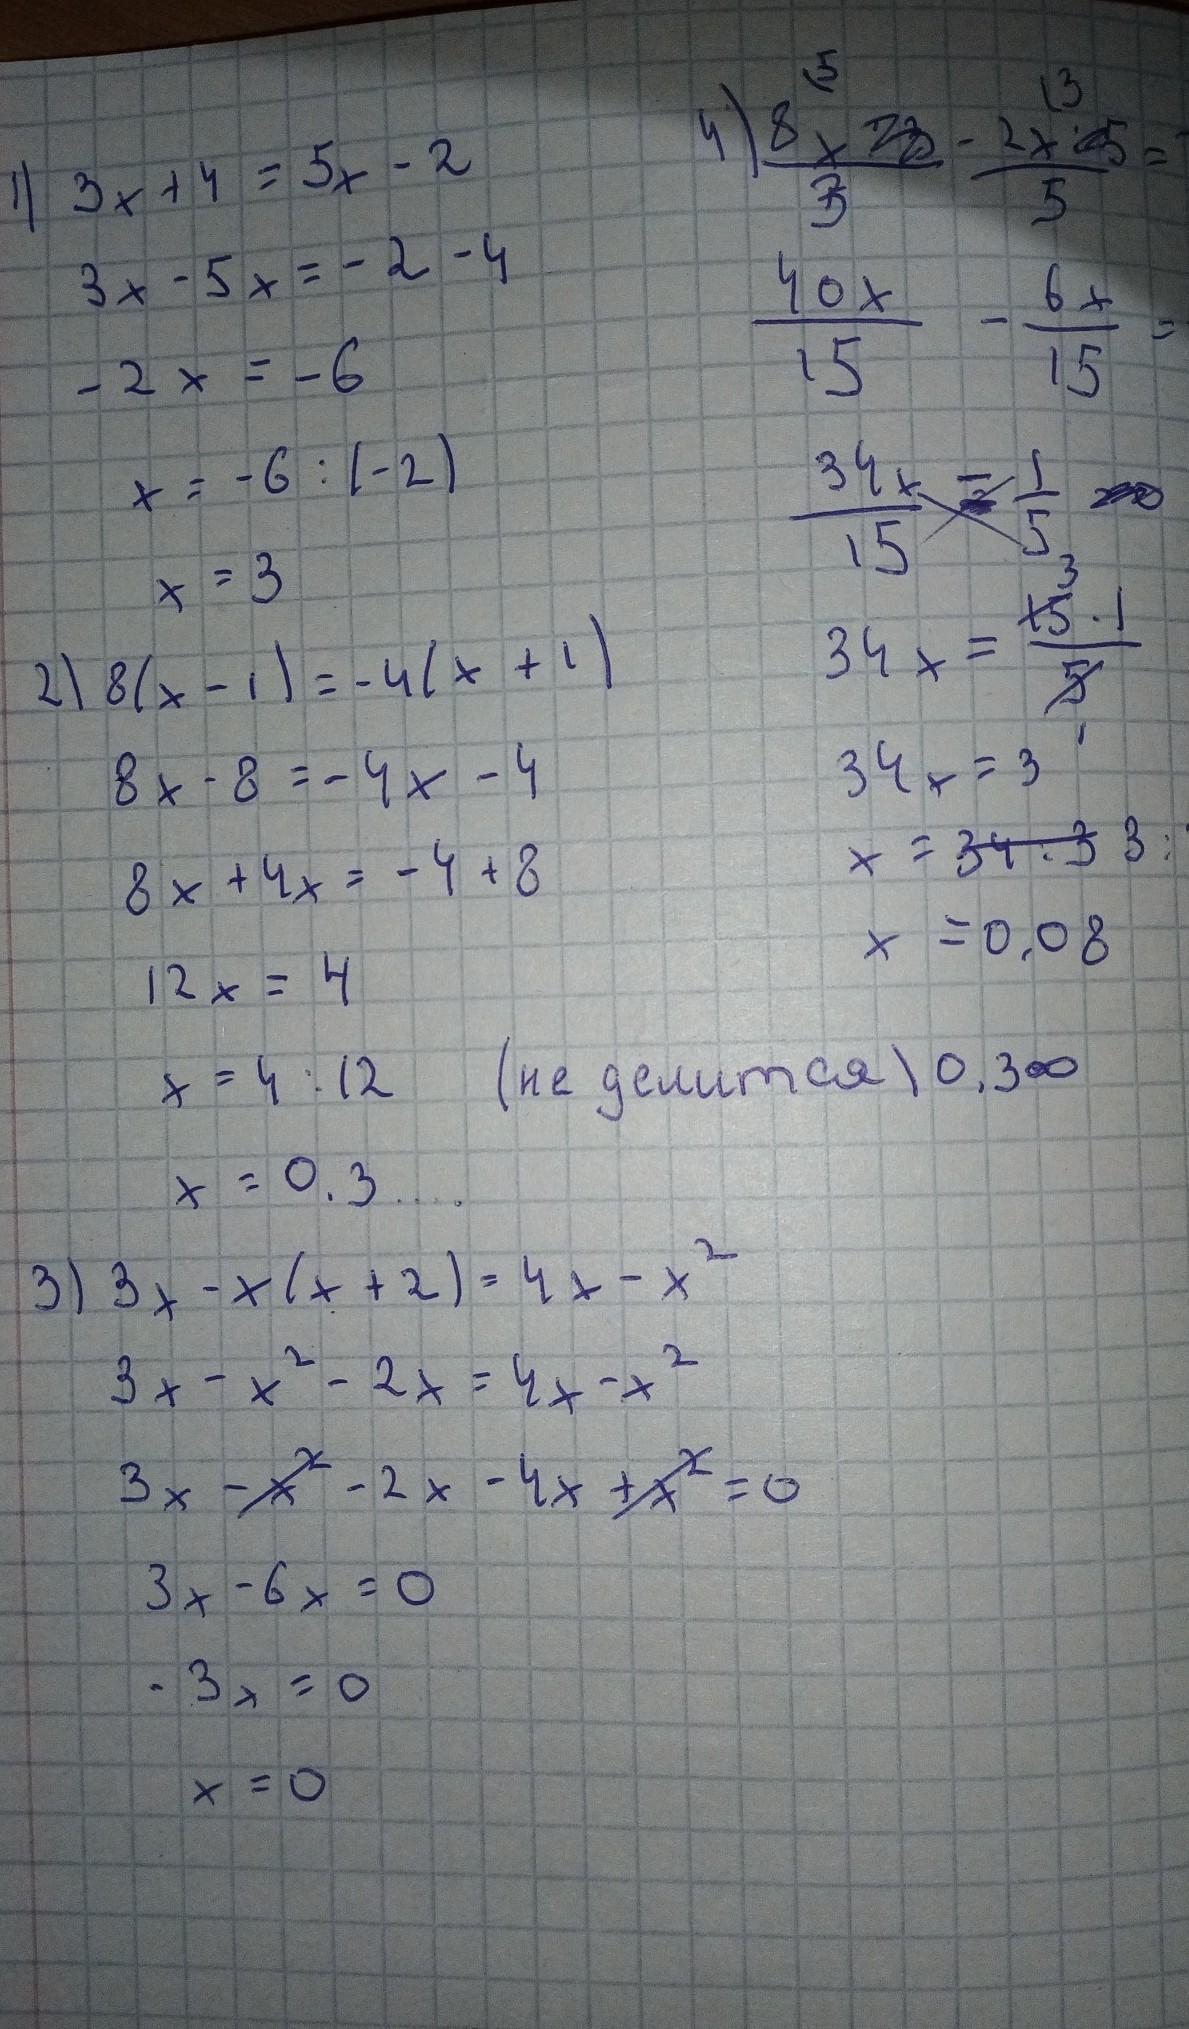 1) 3x + 4 = 5x - 2
3x - 5x = -2 - 4
-2x = -6
x = -6 : (-2)
x = 3
2) 8(x - 1) = -4(x + 1)
8x - 8 = -4x - 4
8x + 4x = -4 + 8
12x = 4
x = 4 : 12 (не делится) 0,3∞
x = 0.3....
3) 3x - x(x + 2) = 4x - x²
3x - x² - 2x = 4x - x²
3x - x² - 2x - 4x + x² = 0
3x - 6x = 0
- 3x = 0
x = 0
(5 (3
4) 8x/3 - 2x/5 =
40x/15 - 6x/15 =
34x/15 = 1/5
3
34x = 15·1/5
1
34x = 3
x = 34 : 3 3 :
x = 0,08